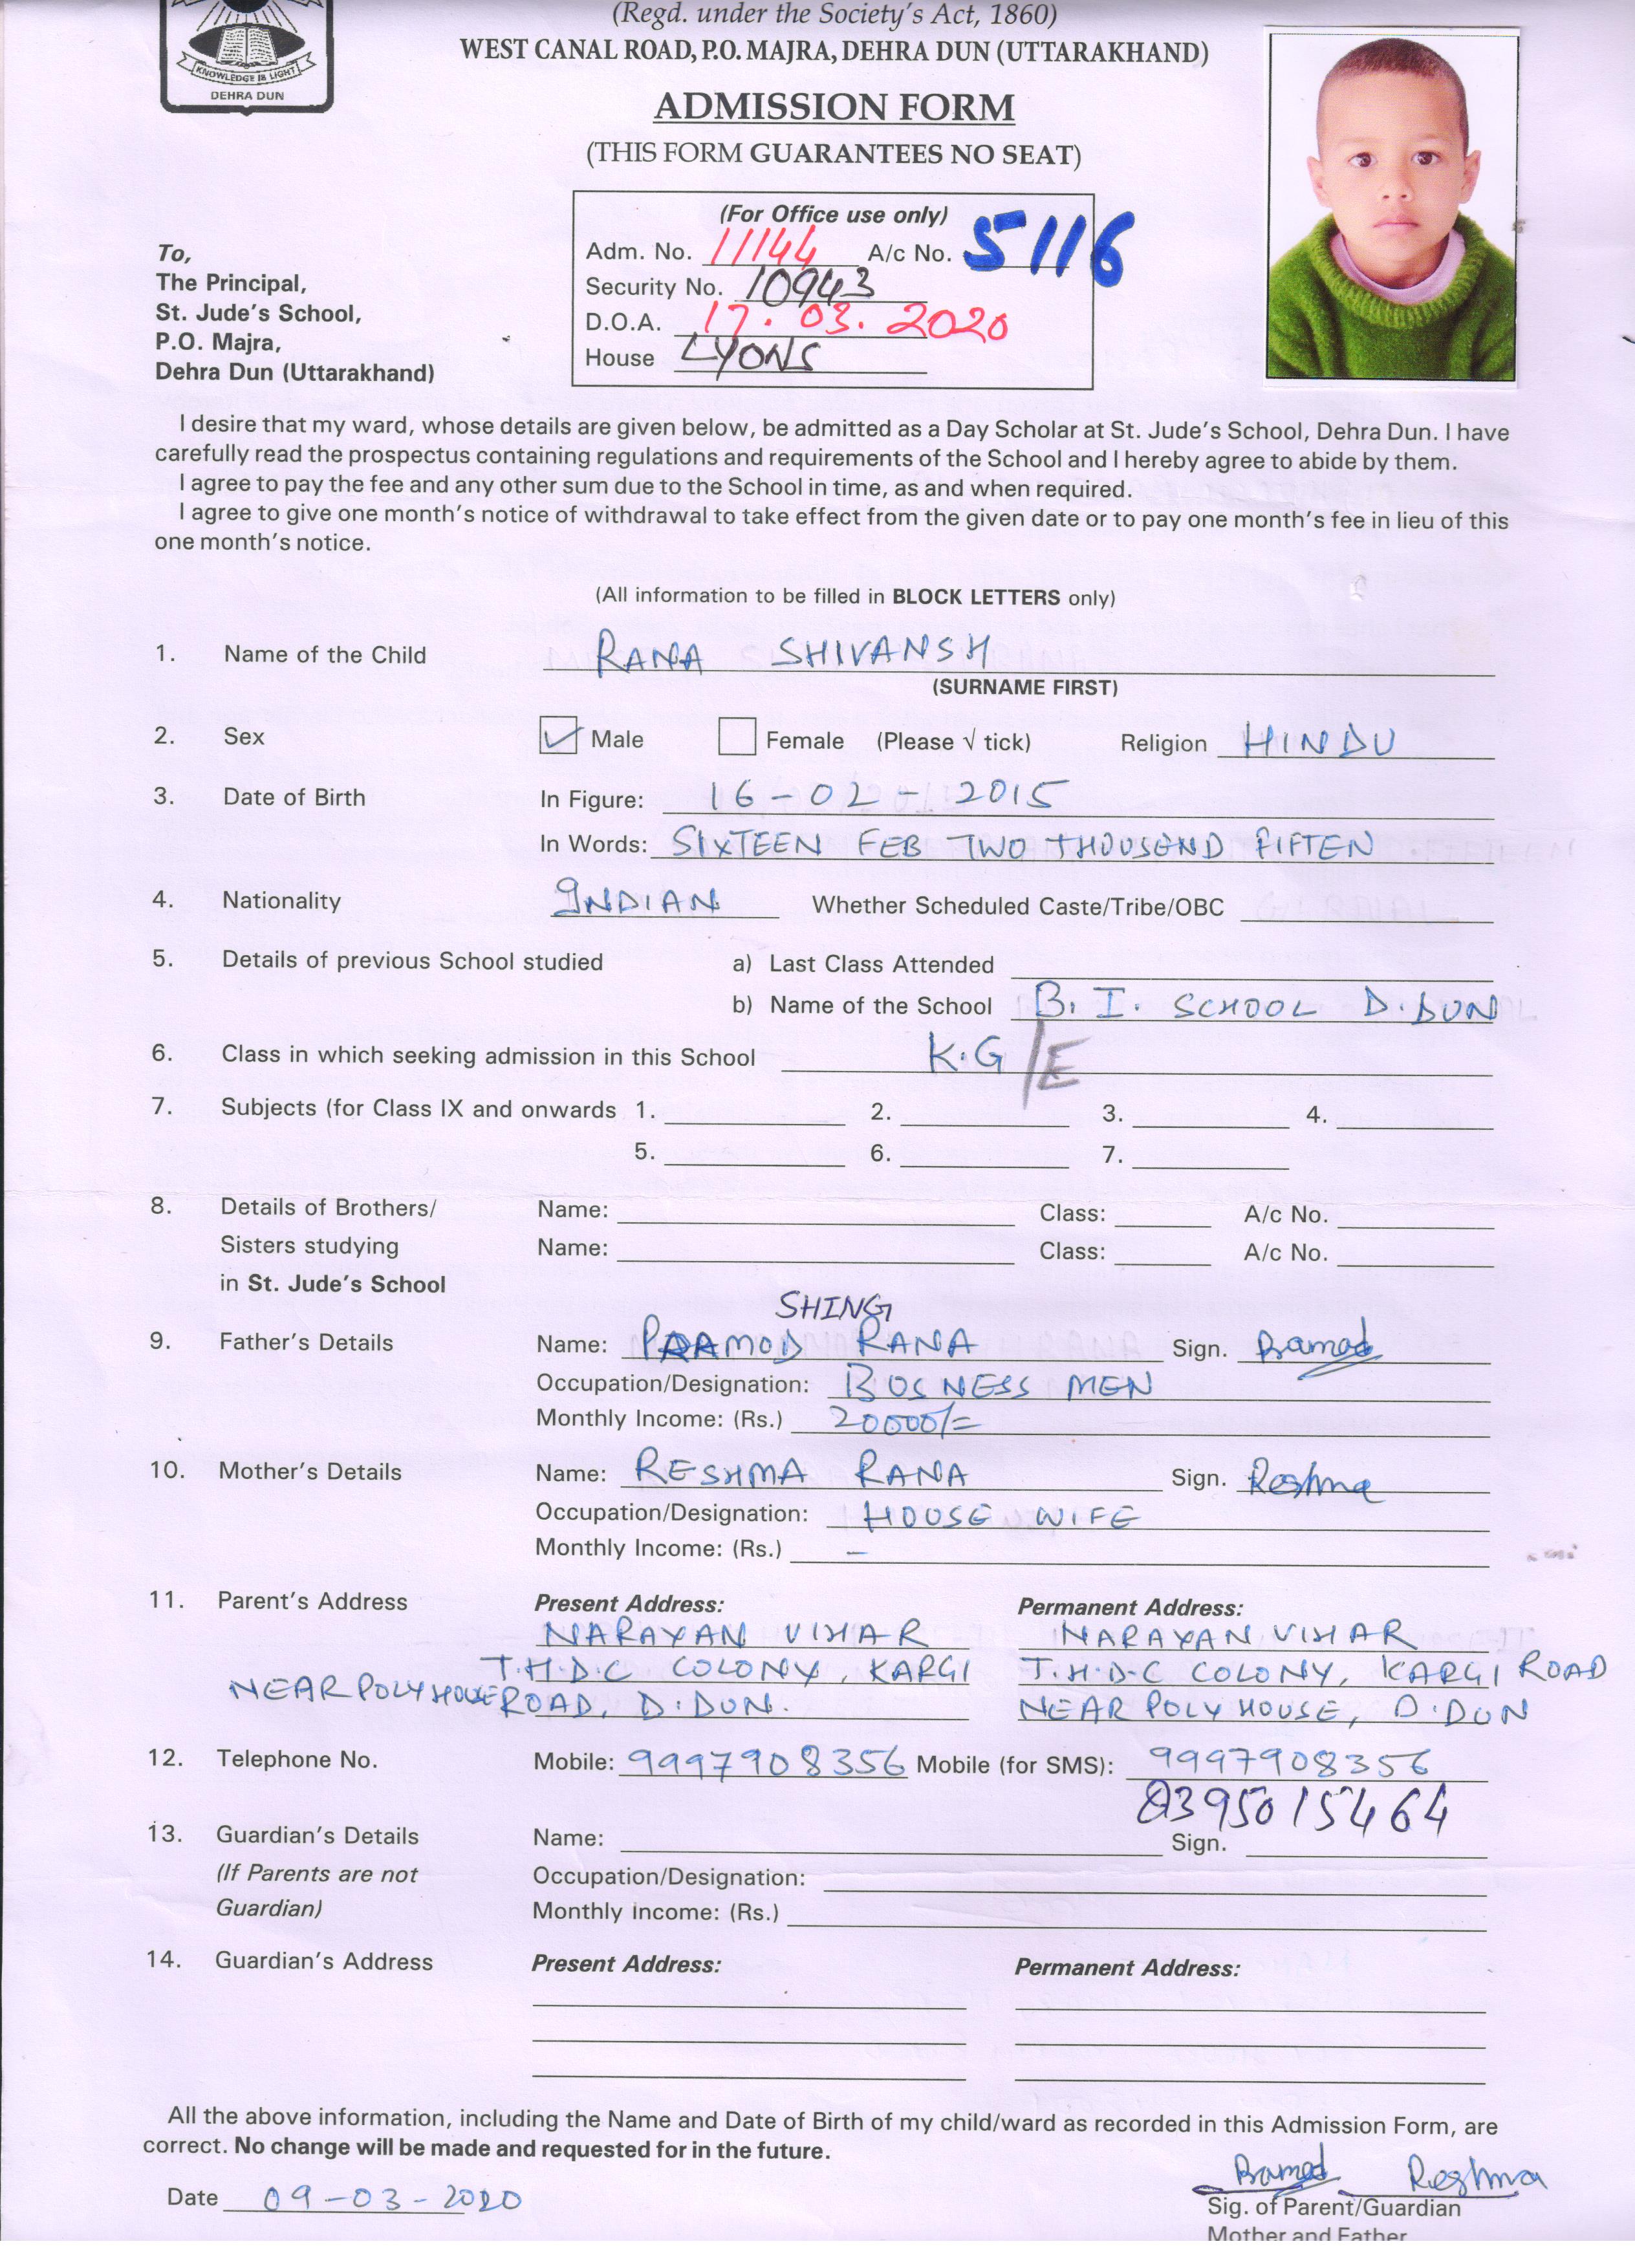 KNOWLEDGE IS LIGHT
DEHRA DUN
(Regd. under the Society's Act, 1860)
WEST CANAL ROAD, P.O. MAJRA, DEHRA DUN (UTTARAKHAND)
ADMISSION FORM
(THIS FORM GUARANTEES NO SEAT)
(For Office use only)
Adm. No. 11144 A/c No. 5116
Security No. 10943
D.O.A. 17.03.2020
House LYONS
To,
The Principal,
St. Jude's School,
P.O. Majra,
Dehra Dun (Uttarakhand)
I desire that my ward, whose details are given below, be admitted as a Day Scholar at St. Jude's School, Dehra Dun. I have
carefully read the prospectus containing regulations and requirements of the School and I hereby agree to abide by them.
I agree to pay the fee and any other sum due to the School in time, as and when required.
I agree to give one month's notice of withdrawal to take effect from the given date or to pay one month's fee in lieu of this
one month's notice.
(All information to be filled in BLOCK LETTERS only)
1. Name of the Child RANA SHIVANSH
(SURNAME FIRST)
2. Sex ✓ Male Female (Please √ tick) Religion HINDU
3. Date of Birth In Figure: 16-02-2015
In Words: SIXTEEN FEB TWO THOUSEND FIFTEN
4. Nationality INDIAN Whether Scheduled Caste/Tribe/OBC
5. Details of previous School studied a) Last Class Attended
b) Name of the School B.I. SCHOOL D.DUN
6. Class in which seeking admission in this School K.G/E
7. Subjects (for Class IX and onwards 1. 2. 3. 4.
5. 6. 7.
8. Details of Brothers/ Name: Class: A/c No.
Sisters studying Name: Class: A/c No.
in St. Jude's School
SHING
9. Father's Details Name: PRAMOD RANA Sign. Pramod
Occupation/Designation: BUSNESS MEN
Monthly Income: (Rs.) 20000/=
10. Mother's Details Name: RESHMA RANA Sign. Reshma
Occupation/Designation: HOUSE WIFE
Monthly Income: (Rs.) –
11. Parent's Address Present Address: Permanent Address:
NARAYAN VIHAR NARAYAN VIHAR
T.H.D.C COLONY, KARGI T.H.D-C COLONY, KARGI ROAD
NEAR POLY HOUSE ROAD, D.DUN. NEAR POLY HOUSE, D.DUN
12. Telephone No. Mobile: 9997908356 Mobile (for SMS): 9997908356
8395015464
13. Guardian's Details Name: Sign.
(If Parents are not Occupation/Designation:
Guardian) Monthly Income: (Rs.)
14. Guardian's Address Present Address: Permanent Address:
All the above information, including the Name and Date of Birth of my child/ward as recorded in this Admission Form, are
correct. No change will be made and requested for in the future.
Pramod Reshma
Date 09-03-2020
Sig. of Parent/Guardian
Mother and Father